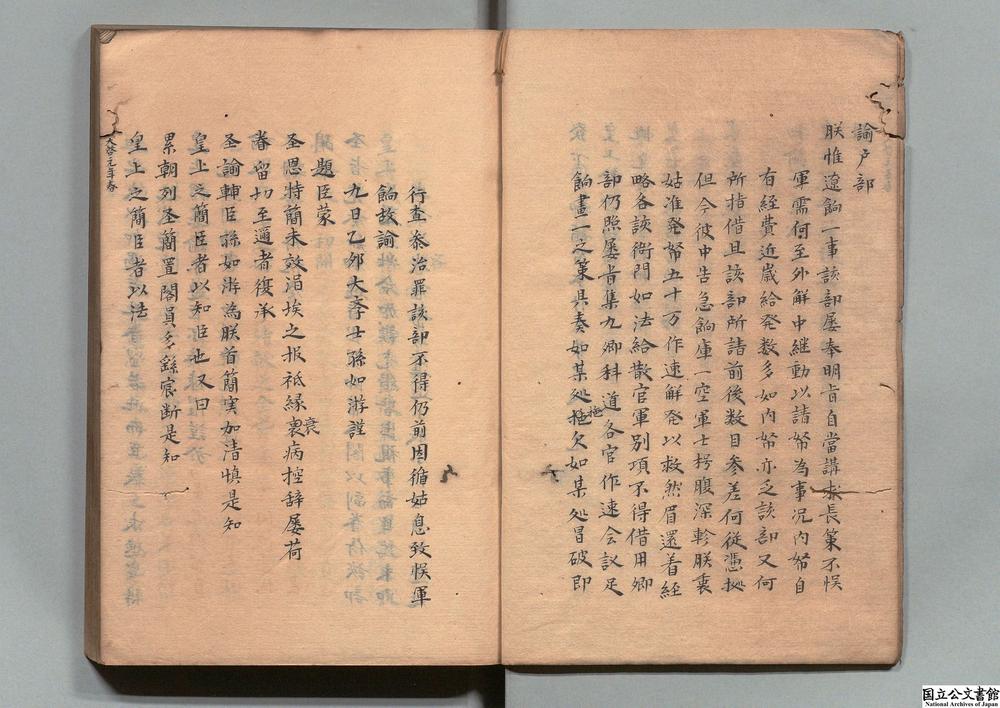 諭户部
朕惟遼餉一事該部屡奉明旨自當講求長策不悞
軍需何至外解中継動以請帑為事况内帑自
有経費近歳給発数多如内帑亦乏該部又何
所指借且該部所請前後数目参差何従憑拠
但今彼中告急餉庫一空軍士枵腹深軫朕裏
姑准発帑五十万作速解発以救然眉還着経
略各該衙門如法給散官軍別項不得借用卿
部仍照屡旨集九卿科道各官作速会議足
餉畫一之策具奏如某処拖欠如某処冒破即
拖
行查参治罪該部不得仍前因循姑息致悞軍
餉故諭
九日乙夘大斈士孫如游謹
題臣蒙
圣恩特簡未效涓埃之报祗縁裏病控辞屡荷
衰
眷留切至邇者復承
圣諭輔臣孫如游為朕首簡寔加清慎是知
皇上之簡臣者以知臣也又曰
累朝列圣簡置閣員多繇宸断是知
皇上之簡臣者以法
天啓元年春
国立公文書館
National Archives of Japan